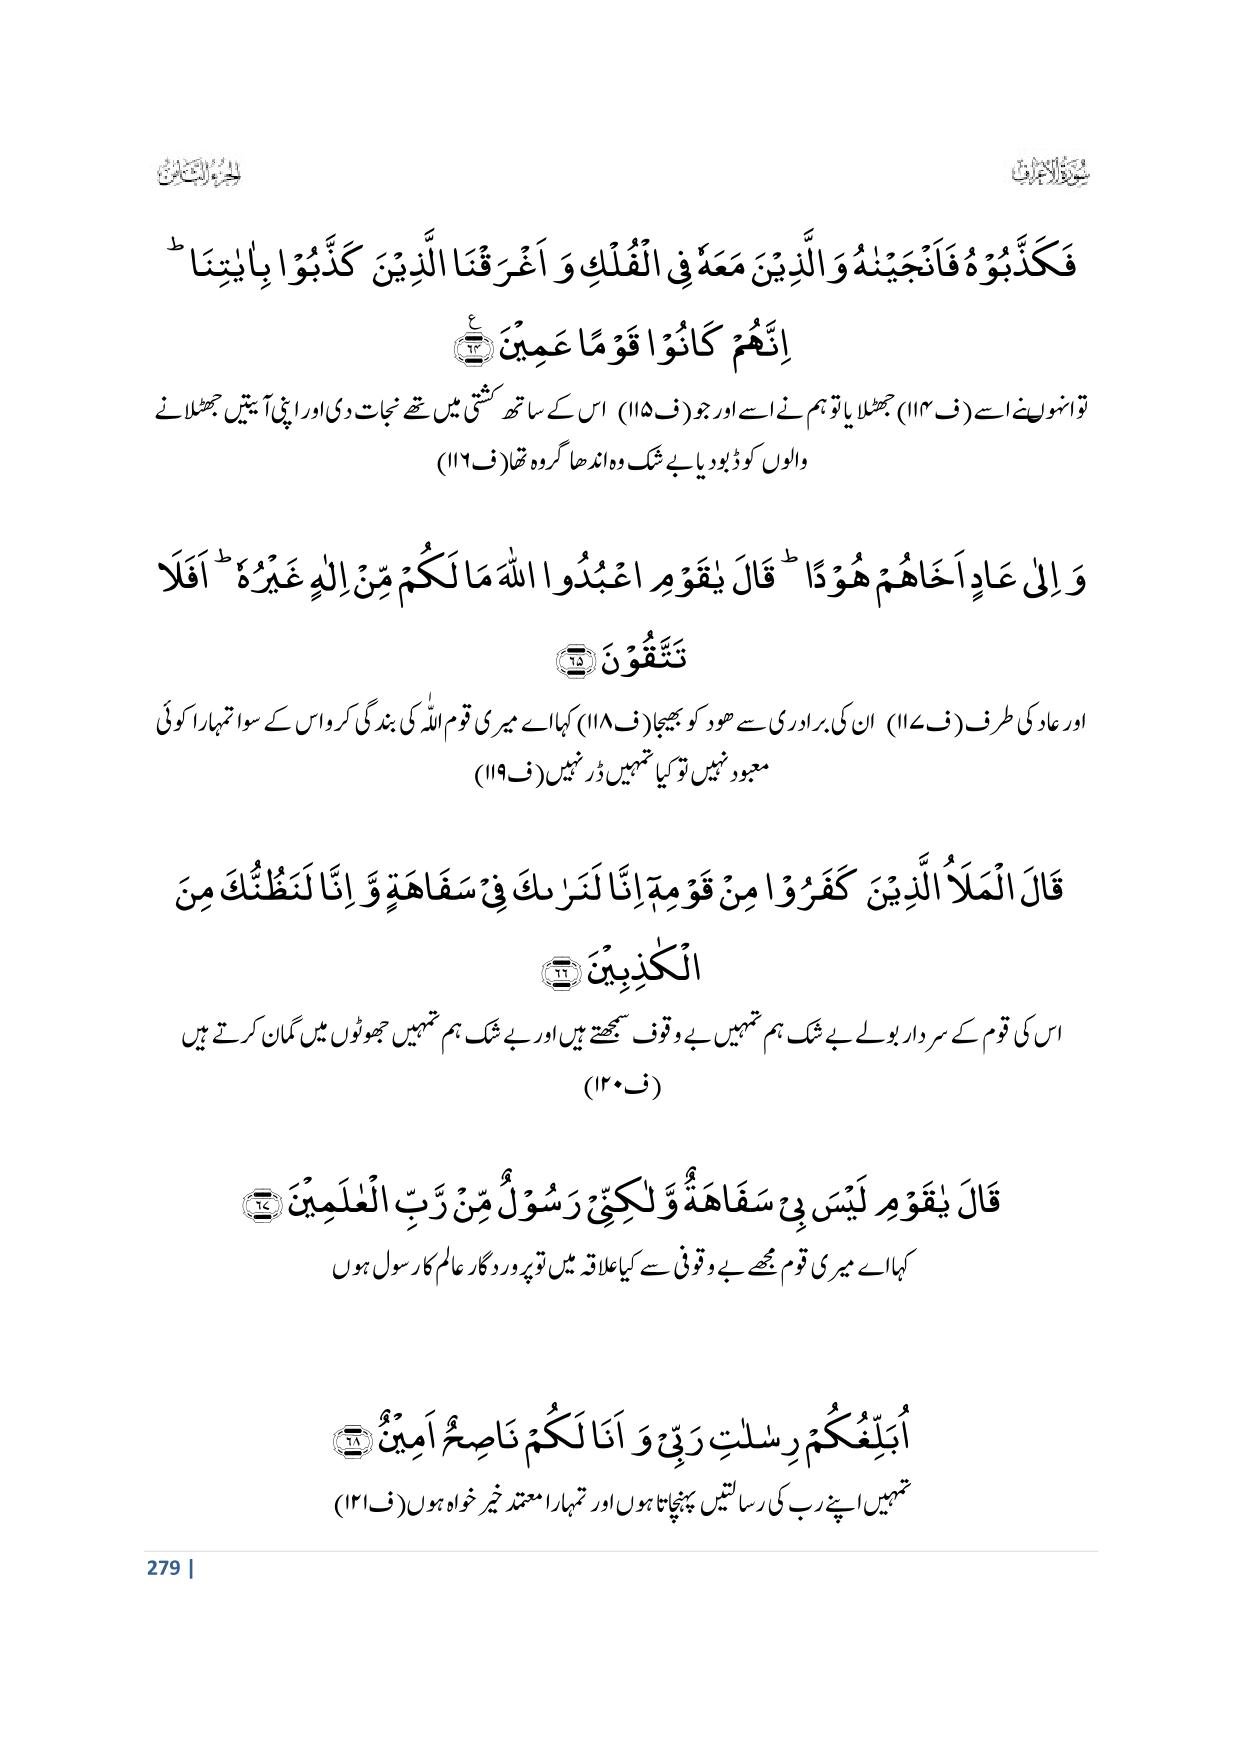 سُوْرَةُ الْاَعْرَاف
الجزء الثامن
فَكَذَّبُوْهُ فَاَنْجَیْنٰهُ وَ الَّذِیْنَ مَعَهٗ فِی الْفُلْكِ وَ اَغْرَقْنَا الَّذِیْنَ كَذَّبُوْا بِاٰیٰتِنَا ؕ
اِنَّهُمْ كَانُوْا قَوْمًا عَمِیْنَ ﴿۶۴﴾ ع
تو انہوں نے اسے (ف۱۱۴) جھٹلایا تو ہم نے اسے اور جو (ف۱۱۵) اس کے ساتھ کشتی میں تھے نجات دی اور اپنی آیتیں جھٹلانے
والوں کو ڈبو دیا بے شک وہ اندھا گروہ تھا (ف۱۱۶)
وَ اِلٰی عَادٍ اَخَاهُمْ هُوْدًا ؕ قَالَ یٰقَوْمِ اعْبُدُوا اللّٰهَ مَا لَكُمْ مِّنْ اِلٰهٍ غَیْرُهٗ ؕ اَفَلَا
تَتَّقُوْنَ ﴿۶۵﴾
اور عاد کی طرف (ف۱۱۷) ان کی برادری سے ھود کو بھیجا (ف۱۱۸) کہا اے میری قوم اللّٰہ کی بندگی کرو اس کے سوا تمہارا کوئی
معبود نہیں تو کیا تمہیں ڈر نہیں (ف۱۱۹)
قَالَ الْمَلَاُ الَّذِیْنَ كَفَرُوْا مِنْ قَوْمِهٖۤ اِنَّا لَنَرٰىكَ فِیْ سَفَاهَةٍ وَّ اِنَّا لَنَظُنُّكَ مِنَ
الْكٰذِبِیْنَ ﴿۶۶﴾
اس کی قوم کے سردار بولے بے شک ہم تمہیں بے وقوف سمجھتے ہیں اور بے شک ہم تمہیں جھوٹوں میں گمان کرتے ہیں
(ف۱۲۰)
قَالَ یٰقَوْمِ لَیْسَ بِیْ سَفَاهَةٌ وَّ لٰكِنِّیْ رَسُوْلٌ مِّنْ رَّبِّ الْعٰلَمِیْنَ ﴿۶۷﴾
کہا اے میری قوم مجھے بے وقوفی سے کیا علاقہ میں تو پروردگار عالم کا رسول ہوں
اُبَلِّغُكُمْ رِسٰلٰتِ رَبِّیْ وَ اَنَا لَكُمْ نَاصِحٌ اَمِیْنٌ ﴿۶۸﴾
تمہیں اپنے رب کی رسالتیں پہنچاتا ہوں اور تمہارا معتمد خیر خواہ ہوں (ف۱۲۱)
279 |